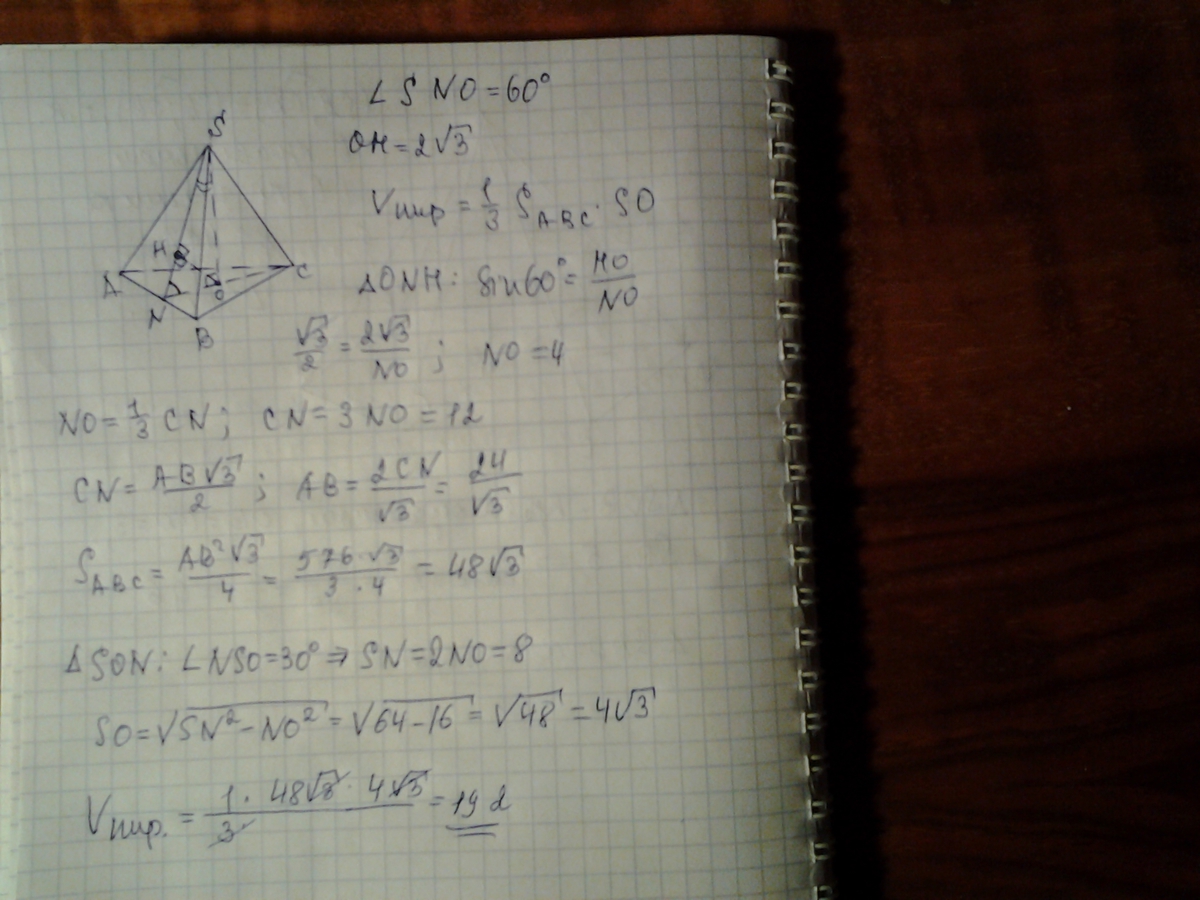 ∠SNO=60°
OH=2√3
Vпир = 1/3 S_ABC · SO
ΔONH: sin60°= HO/NO
√3/2 = 2√3/NO ; NO=4
NO= 1/3 CN; CN=3NO=12
CN= AB√3/2 ; AB= 2CN/√3 = 24/√3
S_ABC = AB²√3/4 = 576·√3/3·4 = 48√3
ΔSON: ∠NSO=30° ⇒ SN=2NO=8
SO=√SN²-NO² = √64-16 = √48 = 4√3
Vпир. = 1·48√3·4√3/3 = 192
S
H
A
C
O
N
B